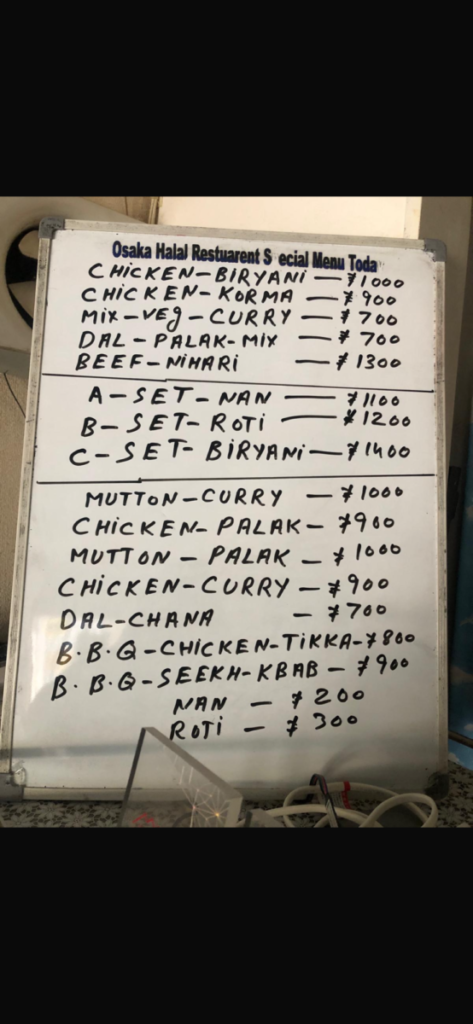 Osaka Halal Restuarent S ecial Menu Toda
CHICKEN-BIRYANI — ¥1000
CHICKEN-KORMA — ¥900
MIX-VEG-CURRY — ¥700
DAL-PALAK-MIX — ¥700
BEEF-NIHARI — ¥1300
A-SET-NAN — ¥1100
B-SET-ROTI — ¥1200
C-SET-BIRYANI — ¥1400
MUTTON-CURRY — ¥1000
CHICKEN-PALAK — ¥900
MUTTON-PALAK — ¥1000
CHICKEN-CURRY — ¥900
DAL-CHANA — ¥700
B.B.Q-CHICKEN-TIKKA-¥800
B.B.Q-SEEKH-KBAB — ¥900
NAN — ¥200
ROTI — ¥300